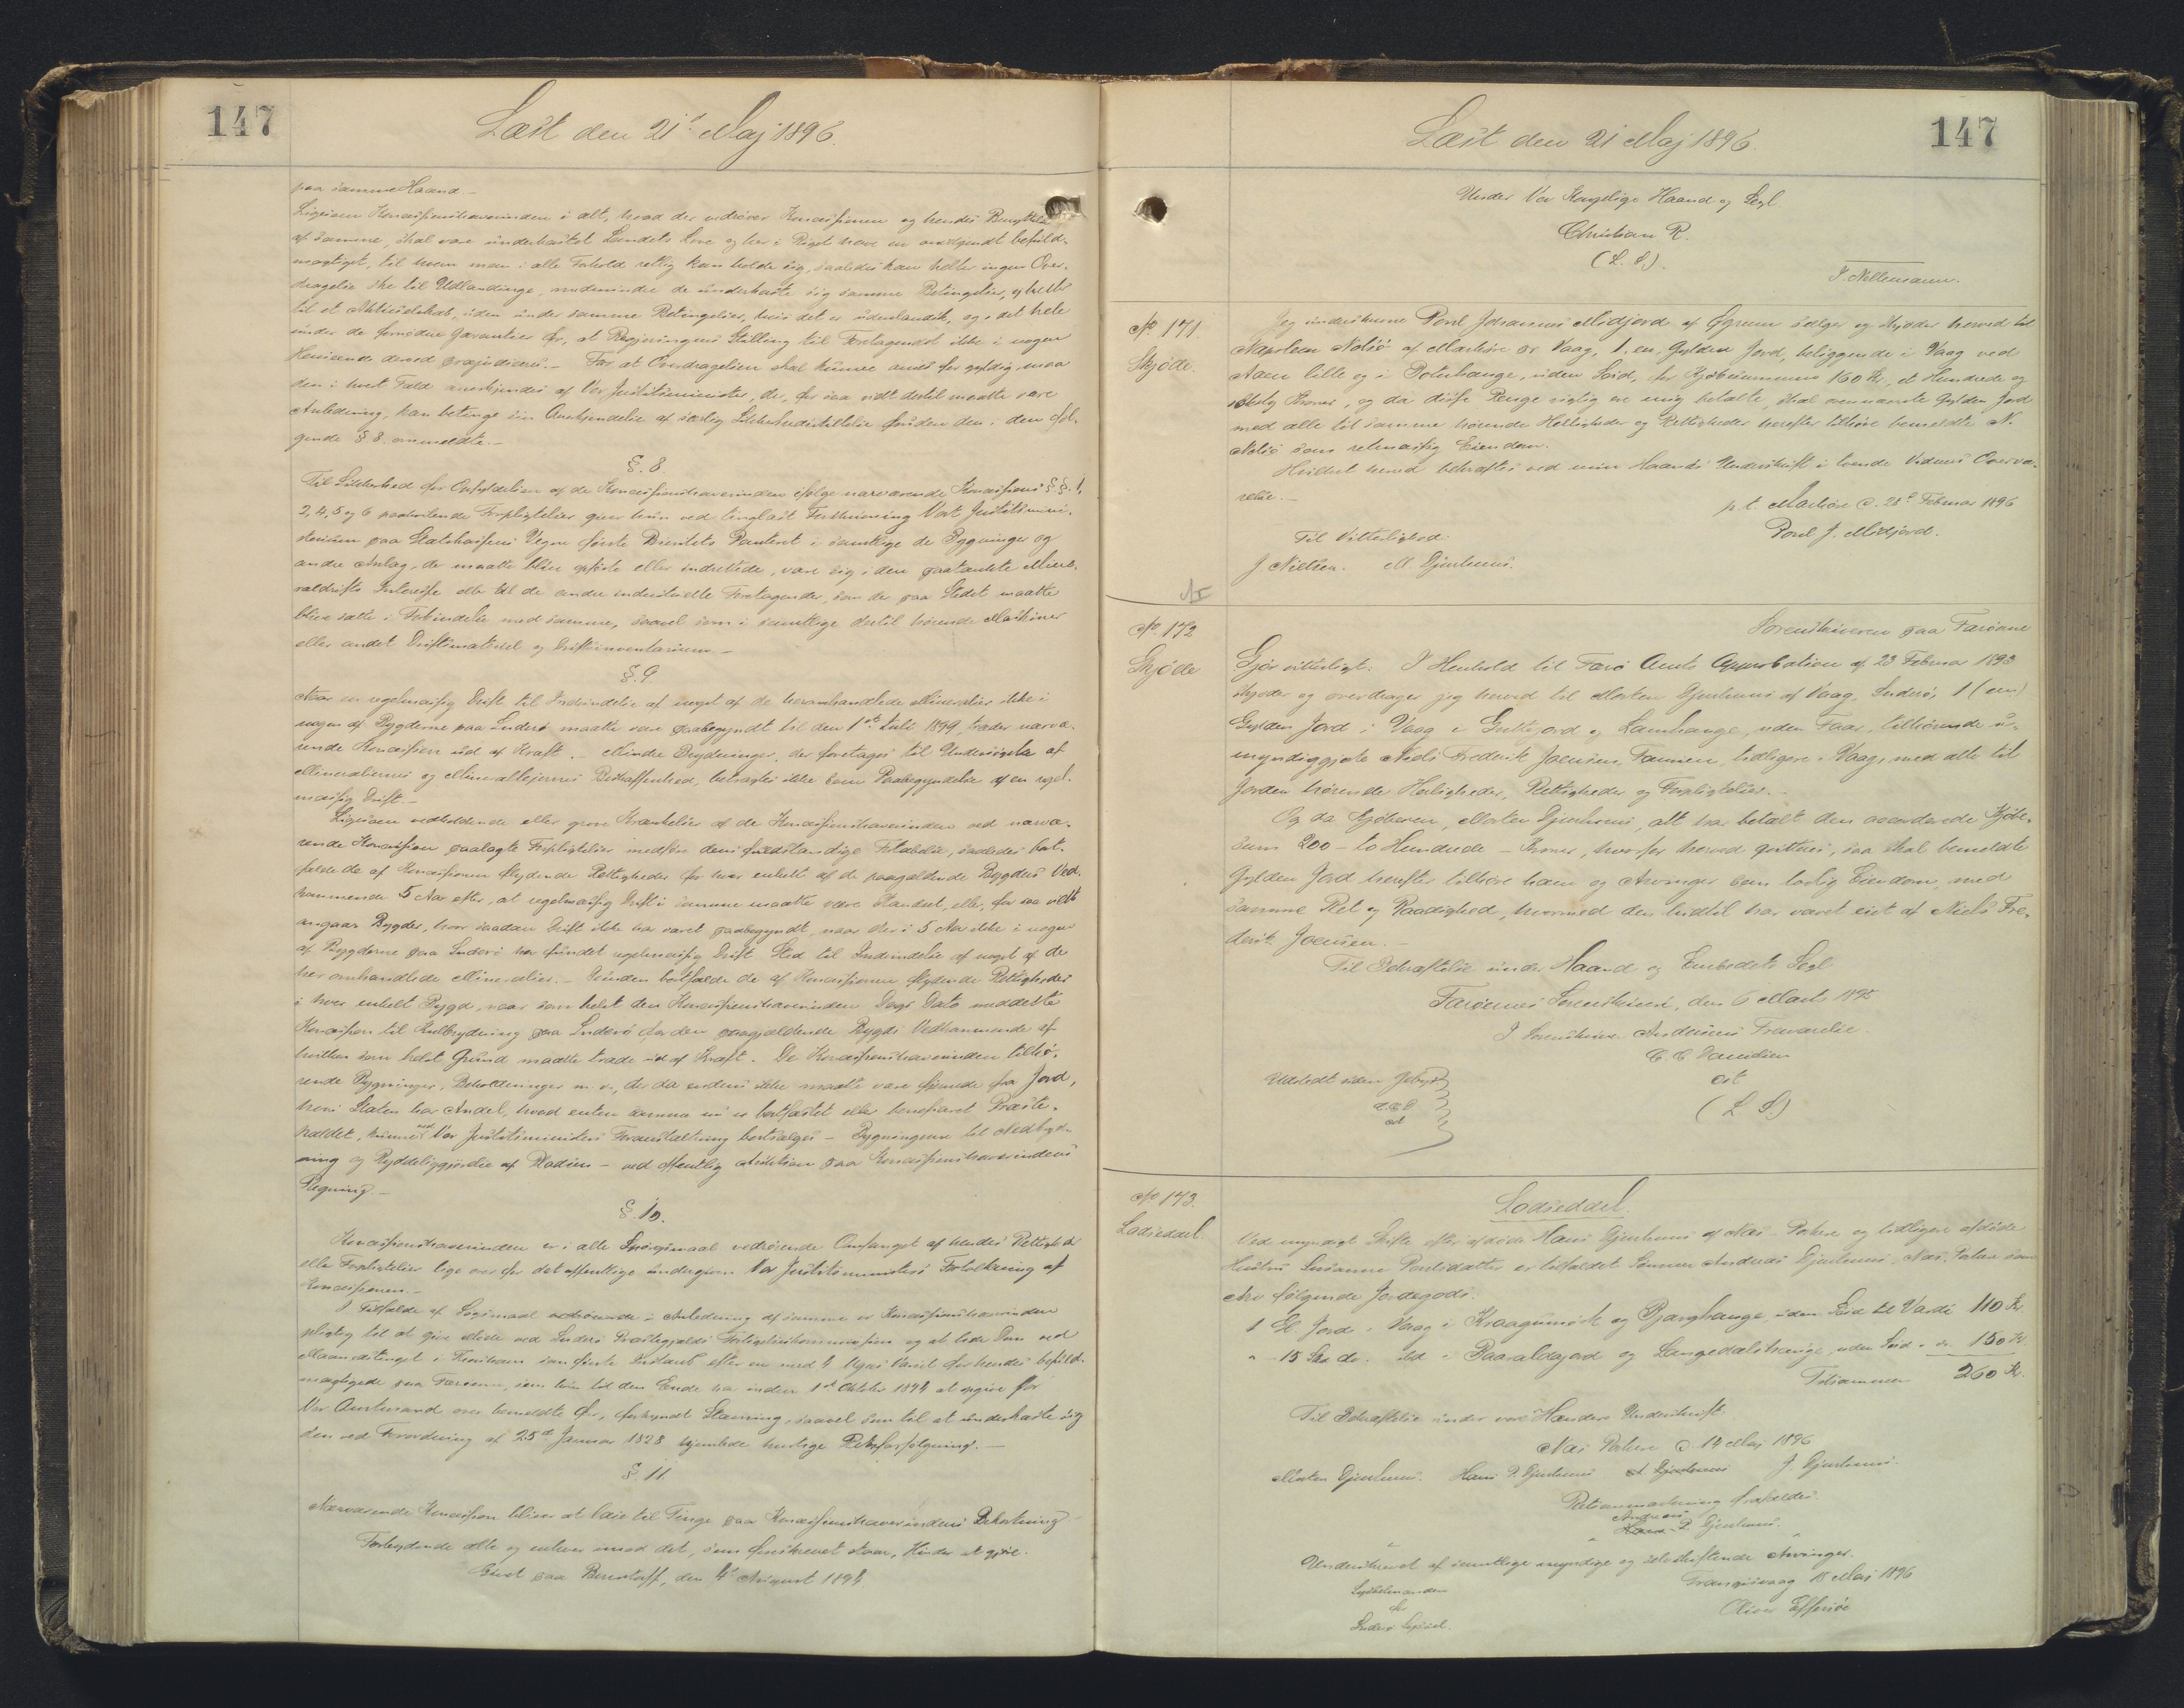 147
Læst den 21d Maj 1896.
paa samme Haand.-
Ligesom Koncessionshaverinden i alt, hvad der vedrører Koncessionen og hendes Benyttelse
af samme, skal være underkastet Landets Love og her i Riget have en befuld-
mægtiget, til hvem man i alle Forhold retlig kan holde sig, saaledes kan heller ingen Over-
dragelse ske til Udlændinge, medmindre de underkaste sig samme Betingelser, og heller
til et Aktieselskab, uden under samme Betingelser, hvis det er udenlandsk, og i det hele
under de fornødne Garantier for, at Regjeringens Stilling til Foretagendet ikke i nogen
Henseende derved præjudiceres.- For at Overdragelsen skal kunne anses for gyldig, maa
den i hvert Fald anerkjendes af Vor Justitsminister, der, for saa vidt dertil maatte være
Anledning, kan betinge sin Anerkjendelse af særlig Sikkerhedsstillelse foruden den i den føl-
gende § 8 ommeldte.-
§. 8.
Til Sikkerhed for Opfyldelsen af de Koncessionshaverinden ifølge nærværende Koncessions §§. 1,
2, 4, 5 og 6 paahvilende Forpligtelser giver hun ved tinglæst Forskrivning Vort Justitsmini-
sterium paa Statskassens Vegne første Prioritets Panteret i samtlige de Bygninger og
andre Anlæg, der maatte blive opførte eller indrettede, være sig i den paatænkte Mine-
raldrifts Interesse eller til de andre industrielle Foretagender, som der paa Stedet maatte
blive satte i Forbindelse med samme, saavel som i samtlige dertil hørende Maskiner
eller andet Driftsmateriel og Driftsinventarium.-
§. 9
Naar en regelmæssig Drift til Indvindelse af noget af de heromhandlede Mineralier ikke i
nogen af Bygderne paa Suderø maatte være paabegyndt til den 1ste Juli 1899, træder nærvæ-
rende Koncession ud af Kraft.- Mindre Brydninger, der foretages til Undersøgelse af
Mineraliernes og Minerallejernes Beskaffenhed, betragtes ikke som Paabegyndelse af en regel-
mæssig Drift.-
Ligesom vedholdende eller grove Krænkelser af de Koncessionshaverinden ved nærvæ-
rende Koncession paalagte Forpligtelser medføre dens fuldstændige Fortabelse, saaledes bort-
falde de af Koncessionen flydende Rettigheder for hver enkelt af de paagældende Bygders Ved-
kommende 5 Aar efter, at regelmæssig Drift i samme maatte være standset, eller, for saa vidt
angaar Bygder, hvor saadan Drift ikke har været paabegyndt, naar der i 5 Aar ikke i nogen
af Bygderne paa Suderø har fundet regelmæssig Drift Sted til Indvindelse af noget af de
her omhandlede Mineralier.- Endvidere bortfalde de af Koncessionen flydende Rettigheder
i hver enkelt Bygd, naar som helst den Koncessionshaverinden Dags Dato meddelte
Koncession til Kulbrydning paa Suderø for den paagjældende Bygds Vedkommende af
hvilken som helst Grund maatte træde ud af Kraft. De Koncessionshaverinden tilhø-
rende Bygninger, Beholdninger m. v., der da endnu ikke maatte være fjernede fra Jord,
hvori Staten har Andel, hvad enten samme nu er bortfæstet eller beneficeret Præste-
kaldet, kunne ved Vor Justitsministers Foranstaltning bortsælges - Bygningerne til Nedbryd-
ning og Ryddeliggjørelse af Pladsen - ved offentlig Auktion paa Koncessionshaverindens
Regning.-
§. 10.
Koncessionshaverinden er i alle Spørgsmaal vedrørende Omfanget af hendes Rettigheder
eller Forpligtelser lige over for det offentlige undergiven Vor Justitsministers Fortolkning af
Koncessionen.-
I Tilfælde af Søgsmaal i Anledning af samme er Koncessionshaverinden
pligtig til at give Møde ved Suderø Præstegjælds Forligelseskommission og at lide Dom ved
Maanedstinget i Thorshavn som første Instants efter en med 4 Ugers Varsel for hendes befuld-
mægtigede paa Færøerne, som hun til den Ende har inden 1ste Oktober 1894 at opgive for
Vor Amtmand over bemeldte Øer, forkyndt Stævning, saavel som til at underkaste sig
den ved Forordning af 25de Januar 1828 hjemlede hurtige Retsforfølgning.-
§. 11
Nærværende Koncession bliver at læse til Tinge paa Koncessionshaverindens Bekostning.-
Forbydende alle og enhver imod det, som foreskrevet staar, Hinder at gjøre.
Givet paa Bernstorff, den 4d August 1894.
147
Læst den 21 Maj 1896.
Under Vor Kongelige Haand og Segl
Christian R.
(L. S.).
J. Nellemann.
No 171.
Skjøde.
Jeg underskrevne Poul Johannes Midjord af Øgrum sælger og skjøder herved til
Napoleon Nolsø af Marknøre Vaag, 1, en, Gylden Jord, beliggende i Vaag ved
Aaen lille og i Botnhauge, uden Sæd, for Kjøbesummen 160 Kr., et Hundrede og
sexty Kroner, og da disse Penge rigtig ere mig betalte, skal ovennævnte Gylden Jord
med alle til samme hørende Herligheder og Rettigheder herefter tilhøre bemeldte N.
Nolsø som retmæssig Eiendom.
Hvilket herved bekræftes ved min Haands Underskrift i tvende Vidners Overvæ-
relse.-
p. t. d. 28d Februar 1896
Poul J. Midjord.
Til Vitterlighed:
J. Nielsen. M. Djurhuus.
No. 172
Skjøde
Sorenskriveren paa Færøerne
Gjør vitterligt: I Henhold til Færø Amts Approbation af 23 Februar 1893
skjøder og overdrager jeg herved til Morten Djurhuus af Vaag, Suderø, 1 (een)
Gylden Jord i Vaag i og Lamhauge, uden Faar, tilhørende u-
myndiggjorte Niels Frederik Joensen, tidligere Vaag, med alle til
Jorden hørende Herligheder, Rettigheder og Forpligtelser.-
Og da Kjøberen, Morten Djurhuus, alt har betalt den accorderede Kjøbe-
sum 200 - to Hundrede - Kroner, hvorfor herved qvitteres, saa skal bemeldte
Gylden Jord herefter tilhøre ham og Arvinger som lovlig Eiendom, med
samme Ret og Raadighed, hvormed den hidtil har været eiet af Niels Fre-
derik Joensen.-
Til Bekræftelse under Haand og Embedets Segl.
Færøernes Sorenskriveri, den 6 Marts 1895
I Sorenskriver Andersens Fraværelse.
C. C. Danielsen
cst
(L S)
Udstedt uden Gebyr
C.C.D
cst
No 173.
Lodseddel.
Lodseddel.
Ved myndigt Skifte efter afdøde Hans Djurhuus af Næs Porkere og tidligere afdøde
Hustru Susanne Poulsdatter er tilfaldet Sønnen Andreas Djurhuus, Næs, Porkere som
Arv følgende Jordegods:
1 Gl. Jord i Vaag i og uden Sæd til Værdi 110 Kr.
" - 15 Sk. do. ibd i og uden Sæd " " 150 Kr
Tilsammen 260 Kr.
Til Bekræftelse under vore Hænders Underskrift.
Næs Porkere d. 14 Maj 1896
Morten Djurhuus. Hans D. Djurhuus A. Djurhuus J. Djurhuus.
Retsanmærkning frafaldes.
Andreas
Hans D. Djurhuus.
Underskrevet af samtlige myndige og selvskiftende Arvinger.
Trangisvaag 15 Maj 1896
Sysselmanden
for
Suderø Syssel.
Oliver Effersøe